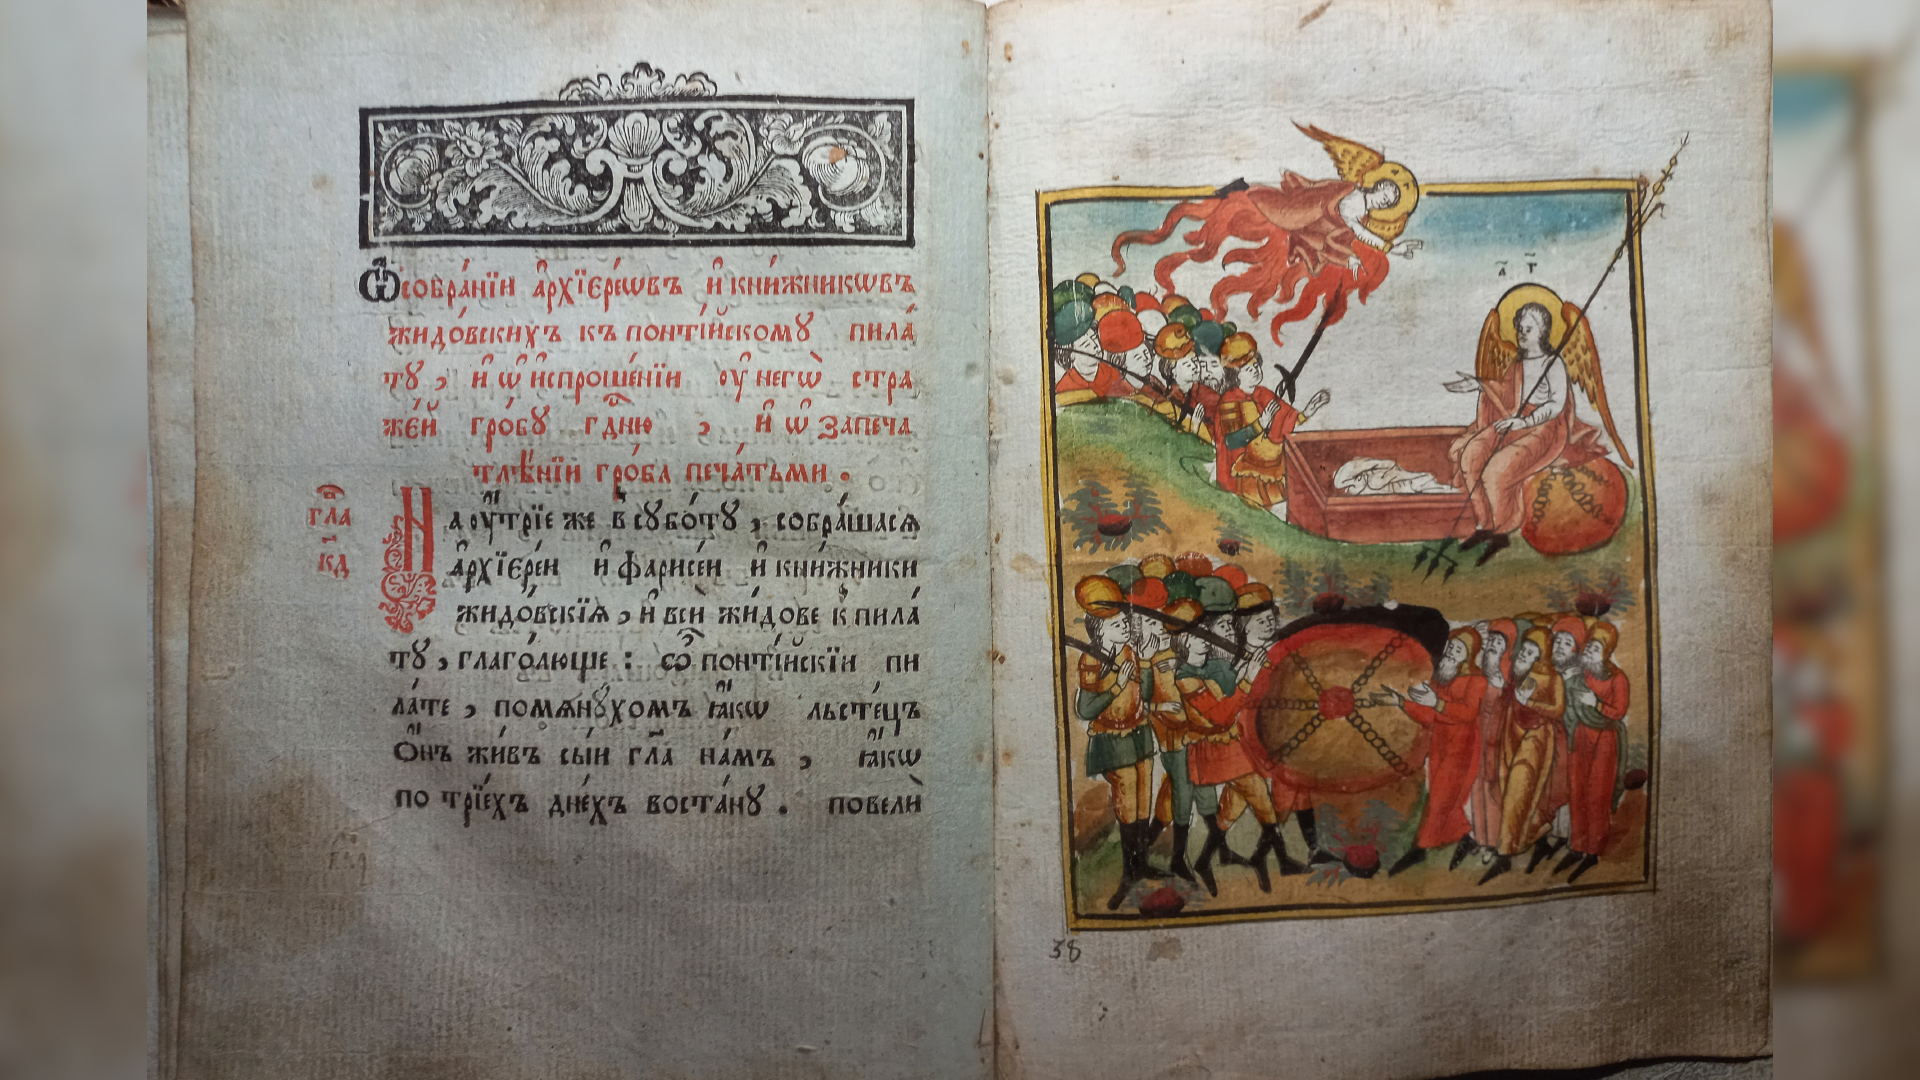 Ѽ собра́нїи а҆рхїєре́ѡвъ и҆ кни́жникѡвъ
жидо́вскихъ къ понті́йскому пила́
ту, и҆ ѡ҆ и҆спроше́нїи ᲂу҆ негѡ̀ стра
же́й гро́бу гдⷭ҇ню , и҆ ѡ҆ запеча
тлѣ́нїи гро́ба печа́тьми .
гла
кд
На ᲂу҆́трїе же в субо́ту , собра́шася
а҆рхїєре́и и҆ фарисе́и и҆ кни́жники
жидо́вскїѧ , и҆ вси́ жи́дове к пила́
ту , глаго́люще : ѽ понті́йскїи пи
ла́те , помѧну́хомъ ꙗ҆́кѡ льсте́цъ
ѻ҆́нъ жи́въ сы́и гл҃а на́мъ , ꙗ҆́кѡ
по трїе́хъ дне́хъ воста́ну . повелѝ
а҃ г҃
38